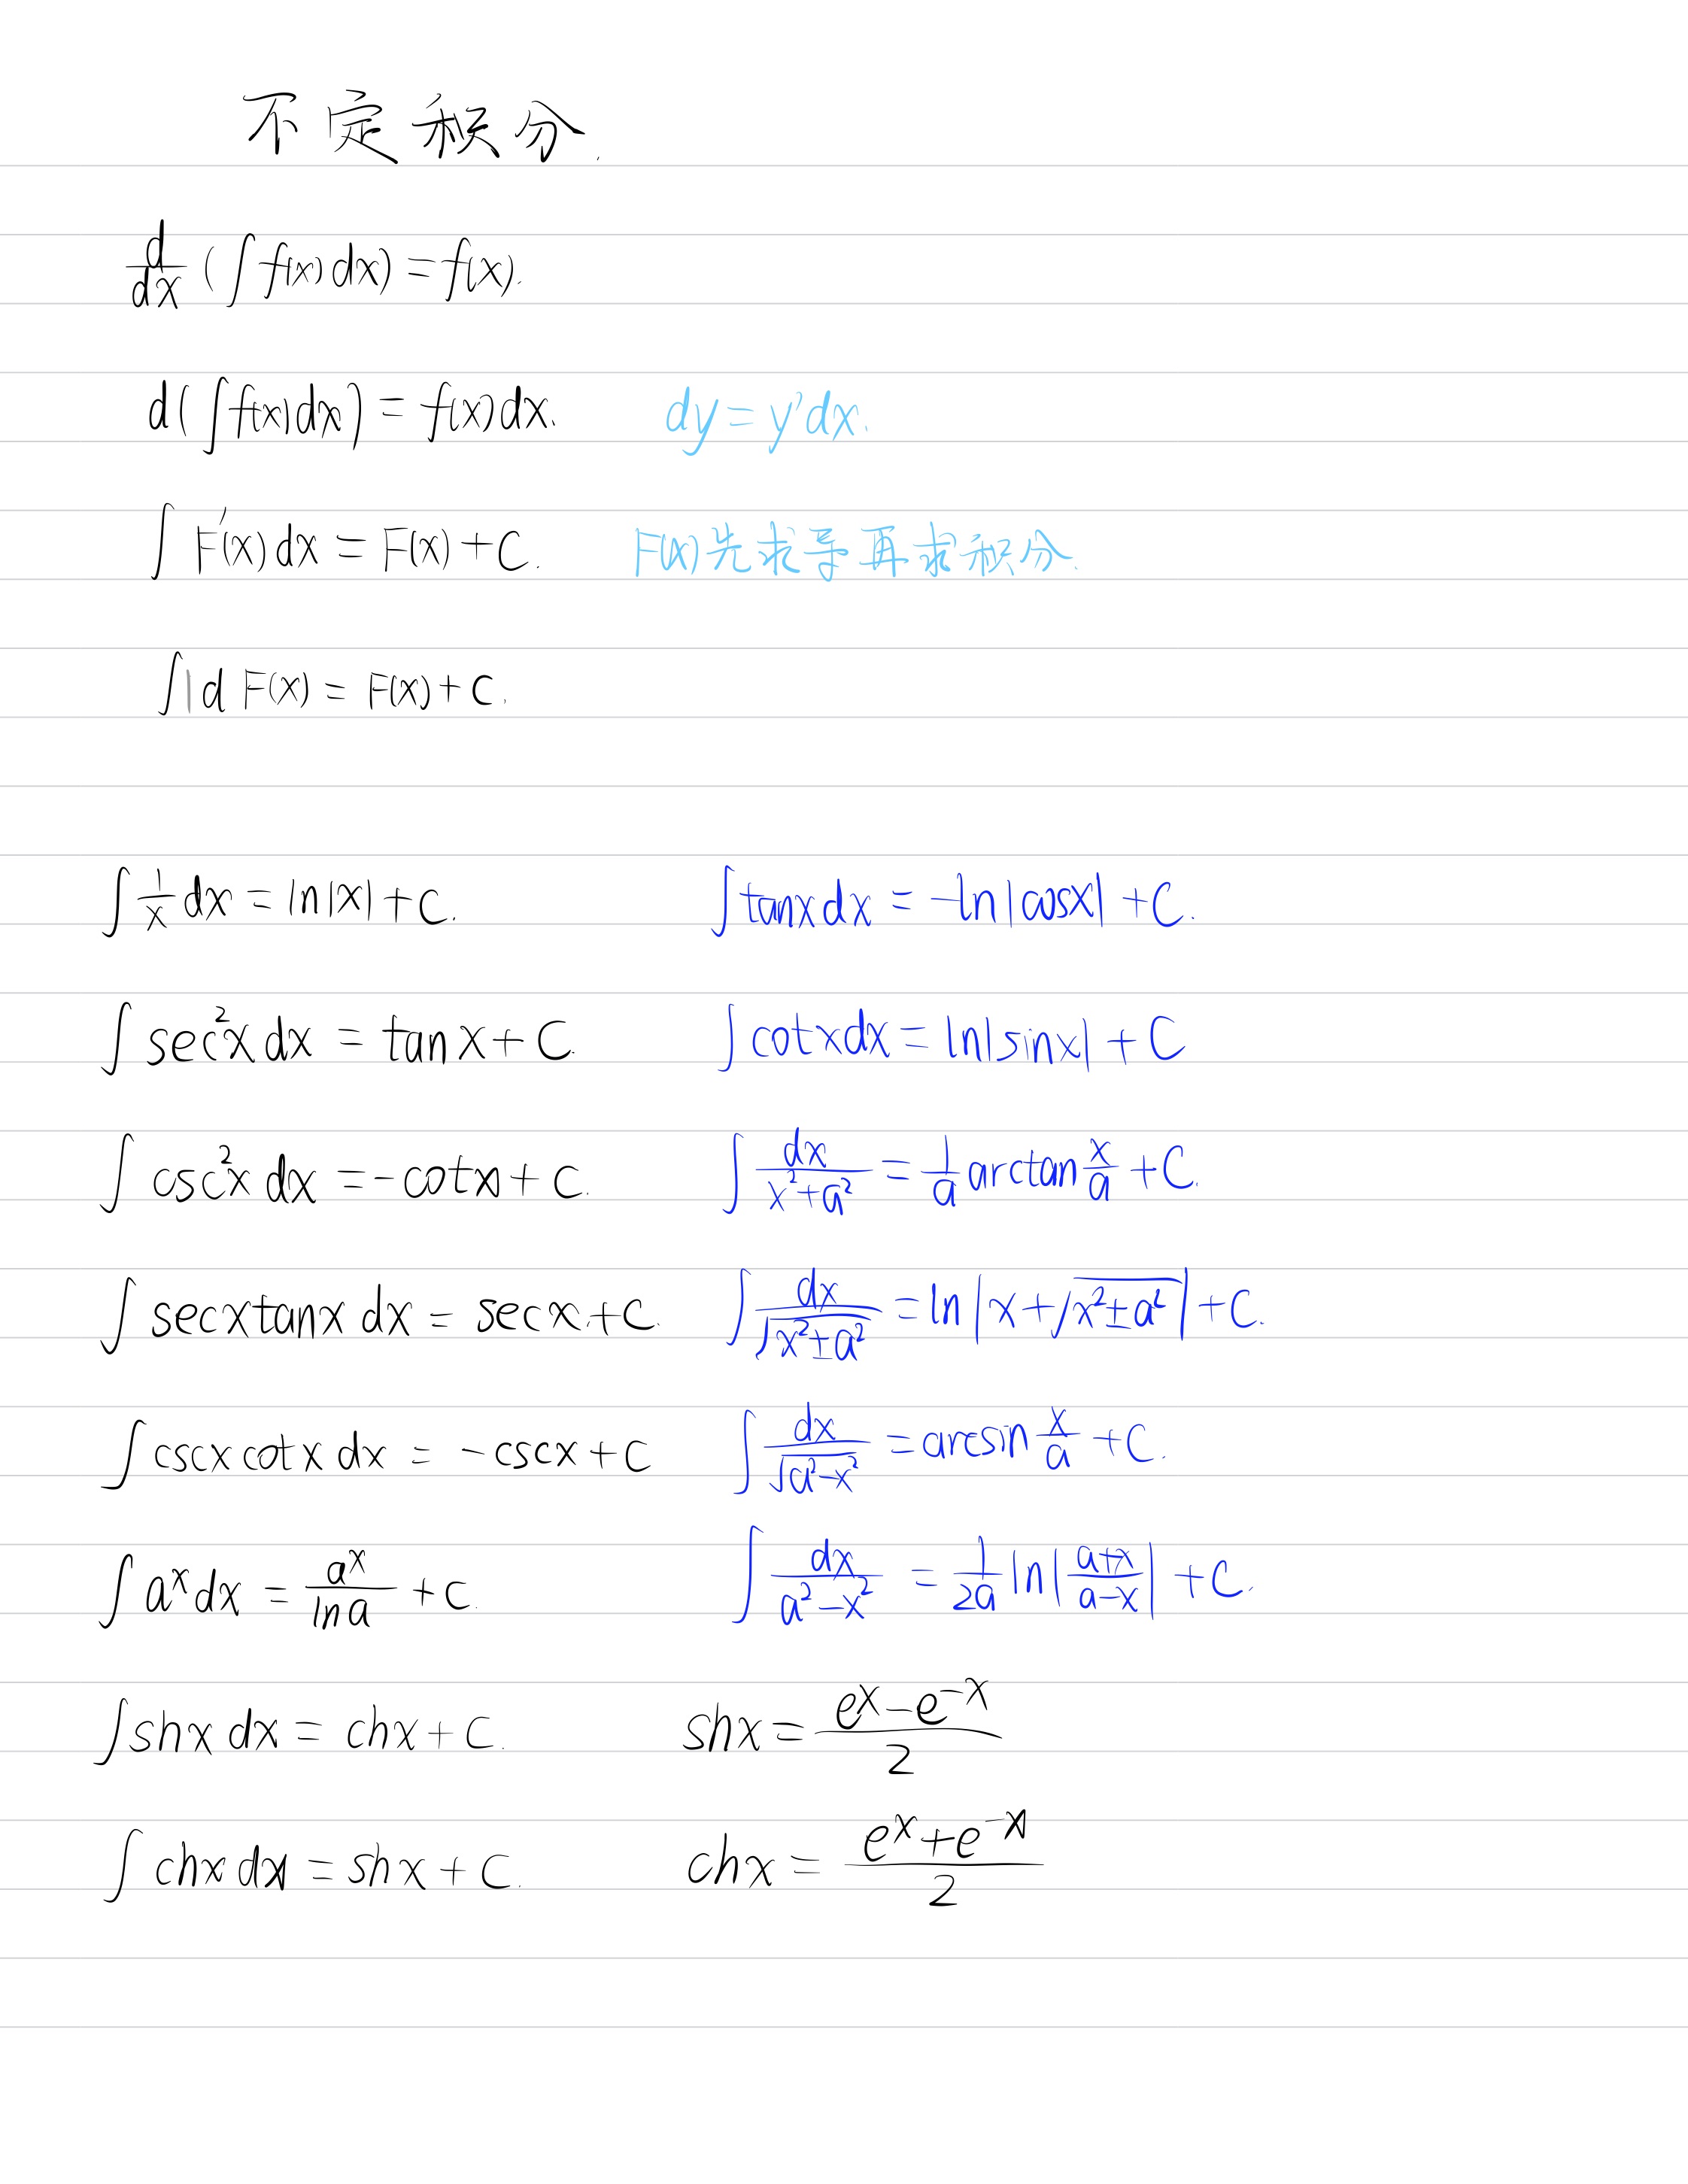 不定积分.
d/dx (∫f(x)dx) = f(x).
d(∫f(x)dx) = f(x)dx. dy = y'dx.
∫F'(x)dx = F(x)+C. F(x)先求导再求积分.
∫1d F(x) = F(x)+C.
∫1/x dx = ln|x|+C. ∫tanxdx = -ln|cosx|+C.
∫sec²x dx = tanx+C. ∫cotxdx = ln|sinx|+C
∫csc²x dx = -cotx+C. ∫dx/(x²+a²) = 1/a arctan x/a +C.
∫secxtanx dx = secx+C. ∫dx/√(x²±a²) = ln|x+√(x²±a²)|+C.
∫cscxcotx dx = -cscx+C ∫dx/√(a²-x²) = arcsin x/a +C.
∫aˣdx = aˣ/lna +C. ∫dx/(a²-x²) = 1/2a ln|(a+x)/(a-x)|+C.
∫shx dx = chx+C. shx = (eˣ-e⁻ˣ)/2
∫chx dx = shx+C. chx = (eˣ+e⁻ˣ)/2